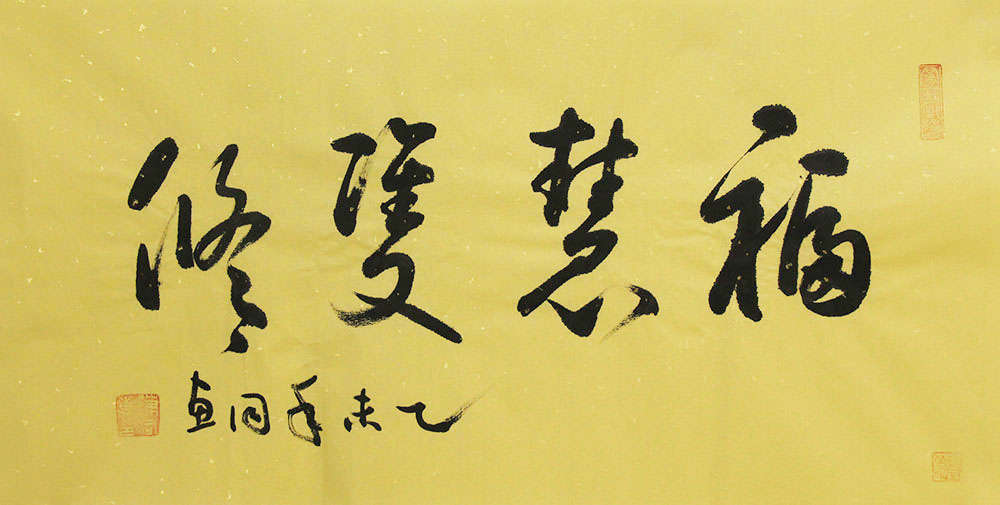 福慧雙修
乙未年同